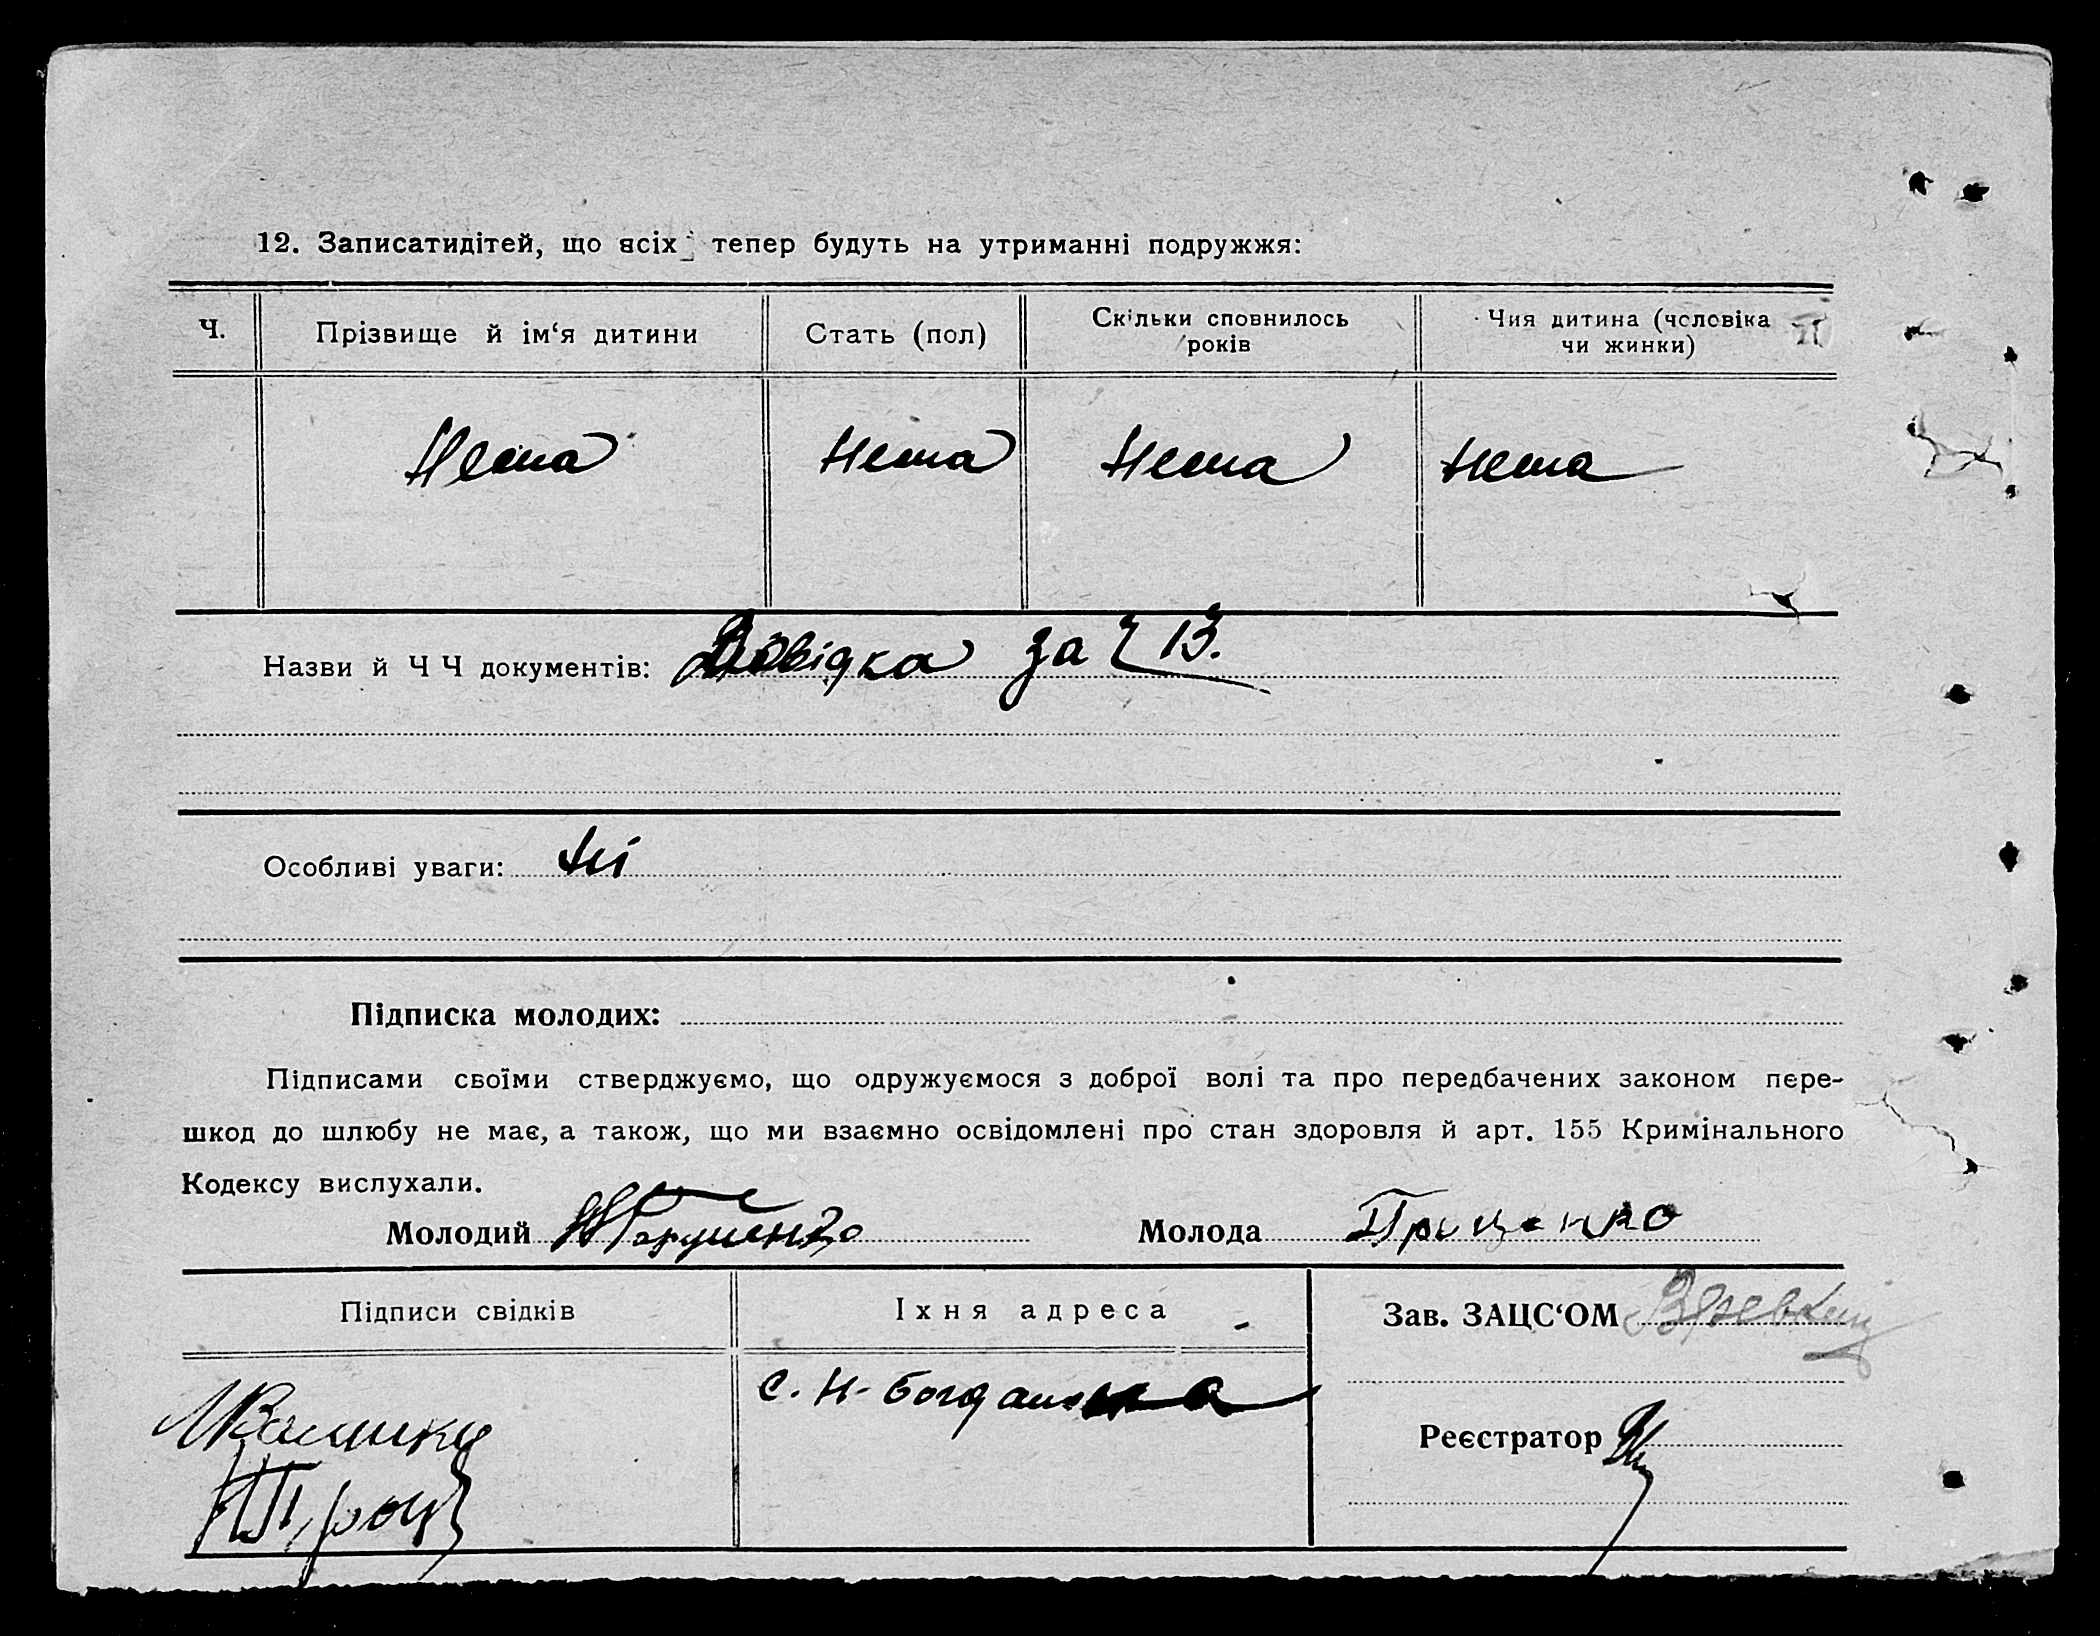 12. Записатидітей, що всіх тепер будуть на утриманні подружжя:
Ч.
Прізвище й ім‘я дитини
Стать (пол)
Скільки сповнилось років
Чия дитина (чоловіка чи жинки)
Нема
Нема
Нема
Нема
Назви й Ч Ч документів: Довідка за ч 13.
Особливі уваги: Ні
Підписка молодих:
Підписами своїми стверджуємо, що одружуємося з доброї волі та про передбачених законом пере-
шкод до шлюбу не має, а також, що ми взаємно освідомлені про стан здоровля й арт. 155 Кримінального
Кодексу вислухали.
Молодий
Молода Грищенко
Підписи свідків
Їхня адреса
Зав. ЗАЦС‘ОМ
с. Н-Богдановка
Реєстратор